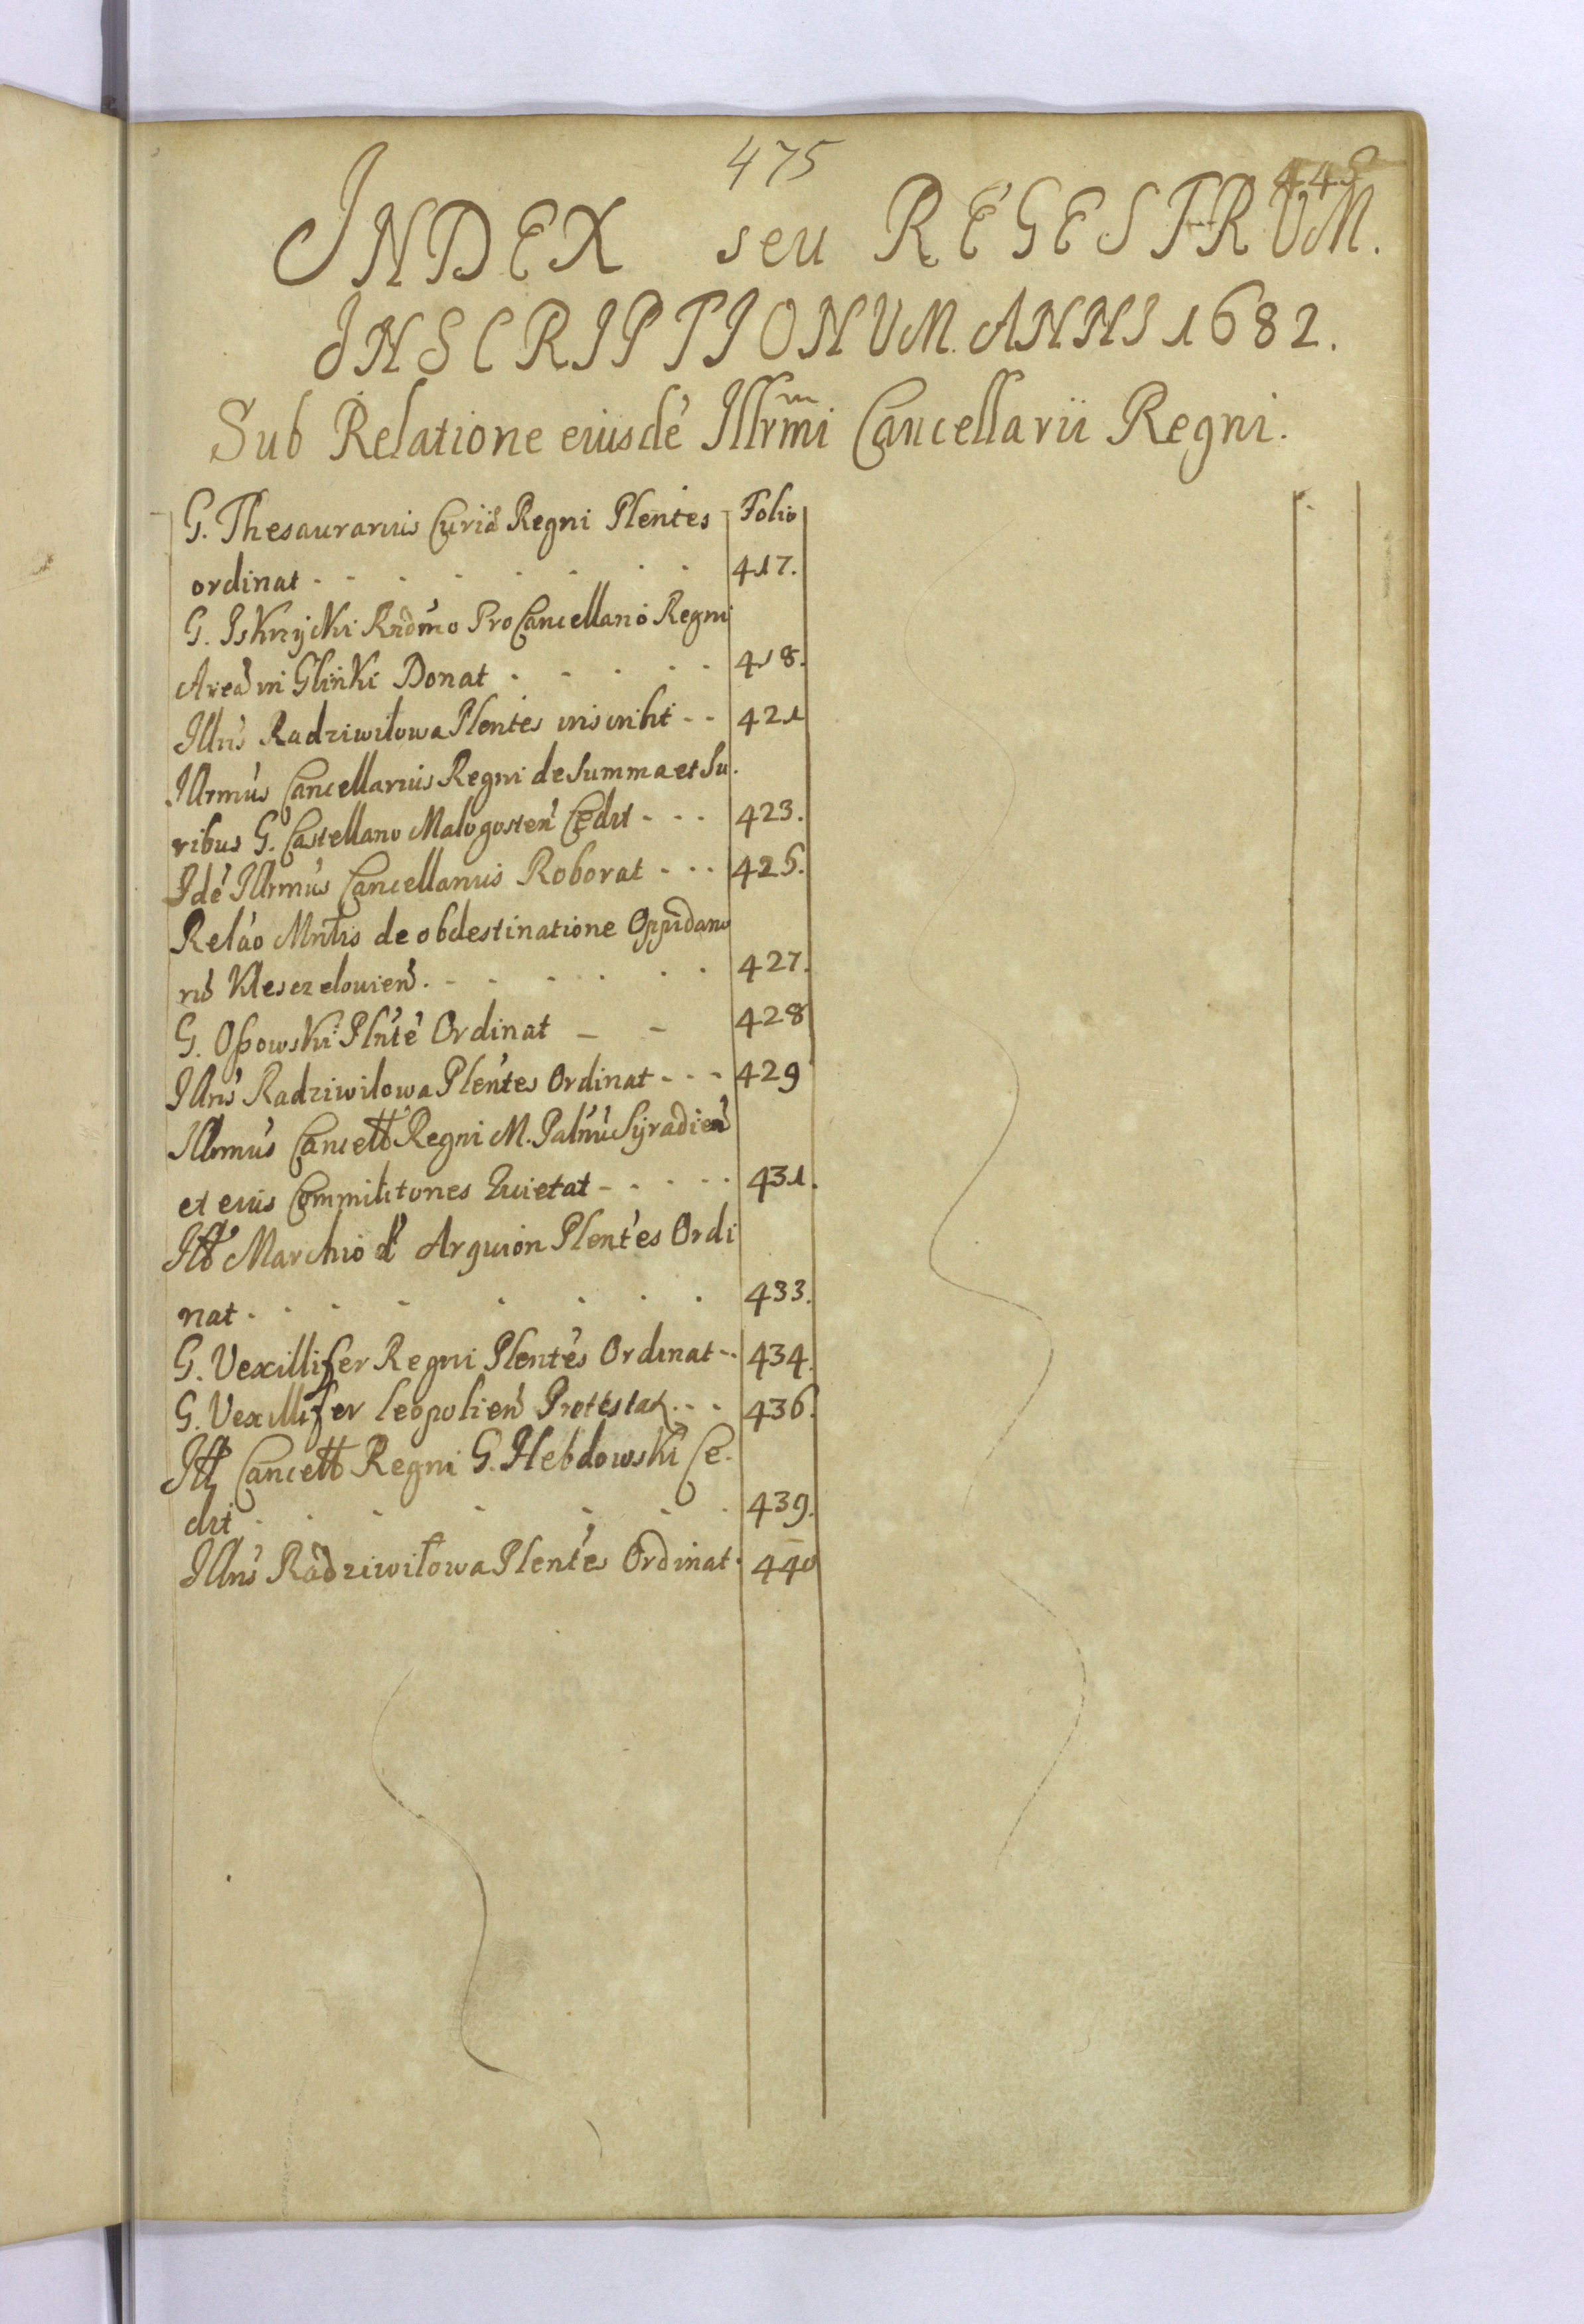 475
442
INDEX seu REGESTRUM.
INSCRIPTIONUM ANNI 1682.
Sub Relatione eiusdē Illrmi Cancellarii Regni.
G. Thesaurarius Curiæ Regni Plentes Folio
ordinat - - - - - - - - 417.
G. Iskrzycki Rndmo ProCancellario Regni
Areā in Glinki Donat - - - - - 418.
Illris Radziwiłowa Plentes inscribit - - 421
Illrmus Cancellarius Regni de Summa et Iu.
ribus G. Castellano Malogosteñ Cedit - - - 423.
Idē Illrmus Cancellarius Roborat - - - 425.
Relao Mntris de obdestinatione Oppidano
rū Kleszczelouieñ. - - - - - - 427.
G. Opowski Plntē Ordinat - - 428
Illris Radziwilowa Plentes Ordinat - - - 429
Illrmus Cancell Regni M. Palnū Syradień
et eius Commilitones Quietat - - - - - 431.
Ill Marchio d' Arquion Plentes Ordi
nat - - - - - - - - 433.
G. Vexillifer Regni Plentes Ordinat - - 434.
G. Vexillifer Leopolień Protestat - - - 436.
Ill Cancell Regni G. Hebdowski Ce.
dit - - - - - - - 439.
Illris Radziwiłowa Plentes Ordinat - 440